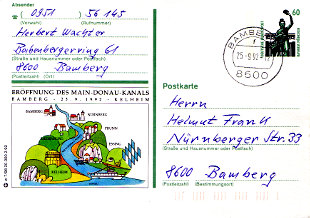 Absender
(0951) 56 145
(Vorwahl) (Rufnummer)
Herbert Wachter
Babenbergerring 61
(Straße und Hausnummer oder Postfach)
8600 Bamberg
(Postleitzahl) (Ort)
ERÖFFNUNG DES MAIN-DONAU-KANALS
BAMBERG - 25.9.1992 - KELHEIM
BAMBERG
NÜRNBERG
PRUNN
ESSING
KELHEIM
60
BAMBERG
25-9.92
8600
Postkarte
Herrn
Helmut Frank
Nürnberger Str. 33
(Straße und Hausnummer oder Postfach)
8600 Bamberg
(Postleitzahl) (Bestimmungsort)